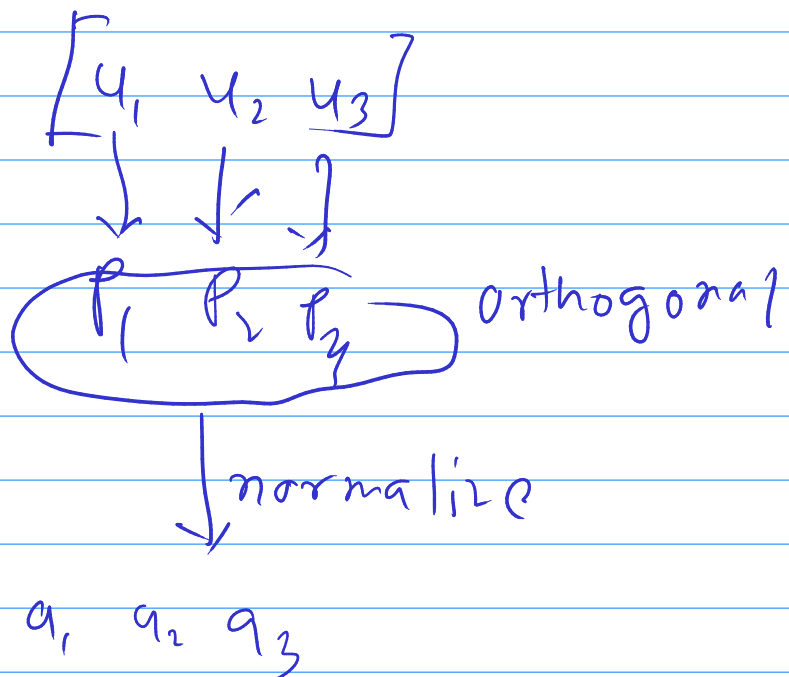 [u₁ u₂ u₃]
P₁ P₂ P₃ orthogonal
normalize
q₁ q₂ q₃